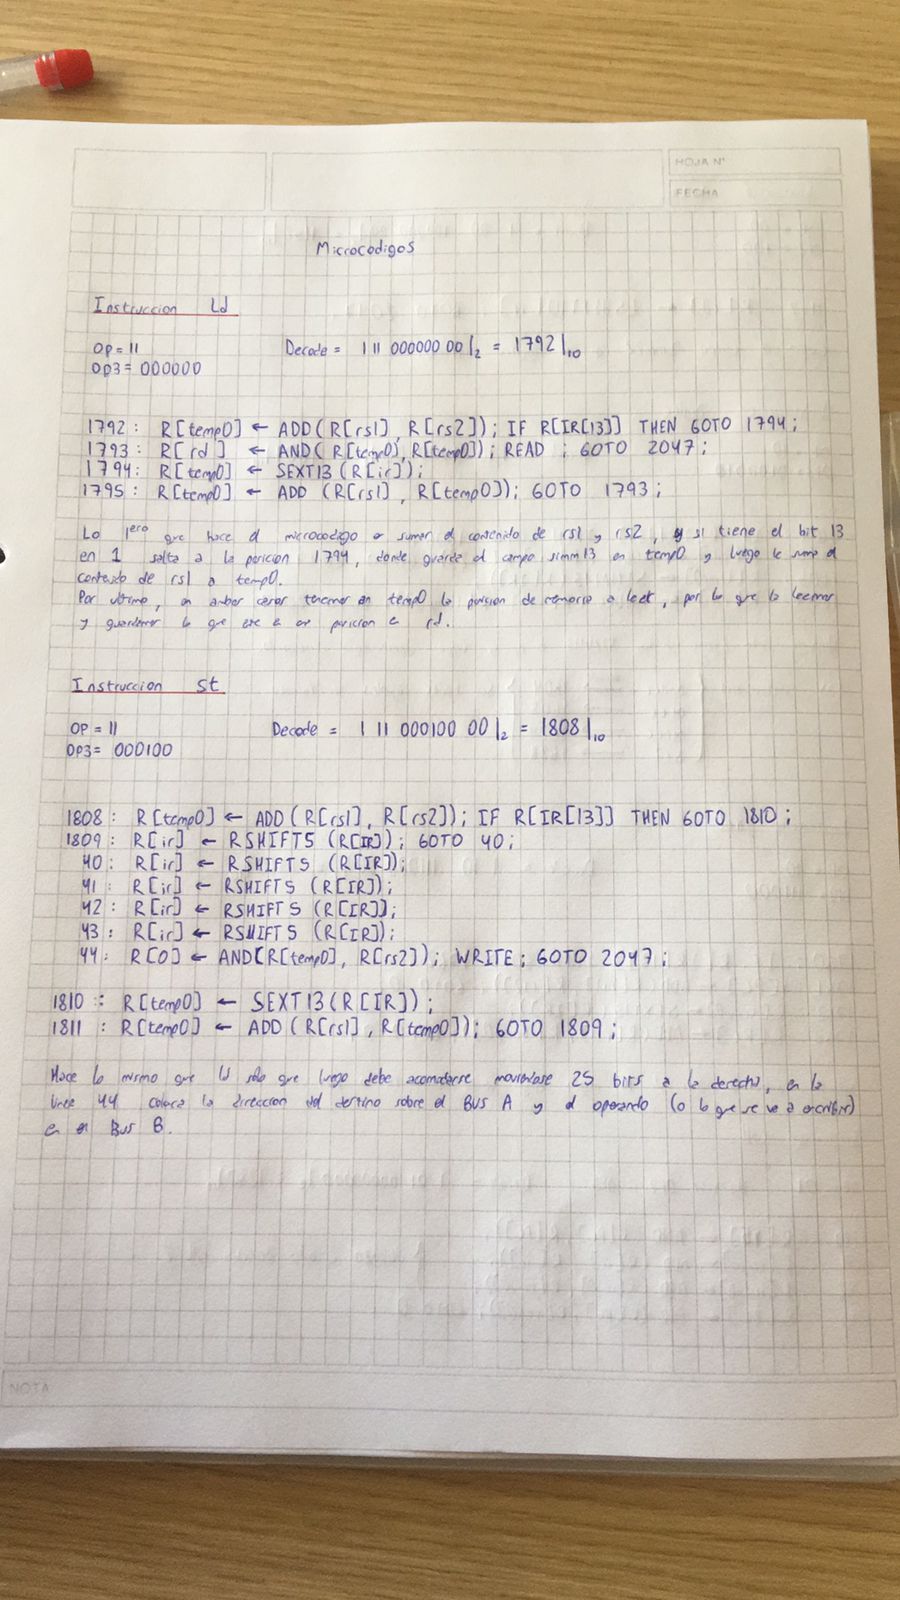 HOJA N°
FECHA
Microcodigos
Instruccion Ld
OP = 11 Decode = 1 11 000000 00|2 = 1792|10
OP3 = 000000
1792: R[temp0] ← ADD(R[rs1], R[rs2]); IF R[IR[13]] THEN GOTO 1794;
1793: R[rd] ← AND(R[temp0], R[temp0]); READ; GOTO 2047;
1794: R[temp0] ← SEXT13(R[ir]);
1795: R[temp0] ← ADD (R[rs1], R[temp0]); GOTO 1793;
Lo 1ero que hace el microcodigo es sumar el contenido de rs1 y rs2, y si tiene el bit 13
en 1 salta a la posicion 1794, donde guarda el campo simm13 en temp0 y luego le suma el
contenido de rs1 a temp0.
Por ultimo, en ambos casos tenemos en temp0 la posicion de memoria a leer, por lo que la leemos
y guardamos lo que en posicion a rd.
Instruccion st
OP = 11 Decode = 1 11 000100 00|2 = 1808|10
OP3 = 000100
1808: R[temp0] ← ADD(R[rs1], R[rs2]); IF R[IR[13]] THEN GOTO 1810;
1809: R[ir] ← RSHIFT5 (R[IR]); GOTO 40;
40: R[ir] ← RSHIFT5 (R[IR]);
41: R[ir] ← RSHIFT5 (R[IR]);
42: R[ir] ← RSHIFT5 (R[IR]);
43: R[ir] ← RSHIFT5 (R[IR]);
44: R[0] ← AND(R[temp0], R[rs2]); WRITE; GOTO 2047;
1810: R[temp0] ← SEXT13(R[IR]);
1811: R[temp0] ← ADD(R[rs1], R[temp0]); GOTO 1809;
Hace lo mismo que ld solo que luego debe acomodarse moviendose 25 bits a la derecha, en la
linea 44 coloca la direccion del destino sobre el BUS A y el operando (o lo que se va a escribir)
en el Bus B.
NOTA